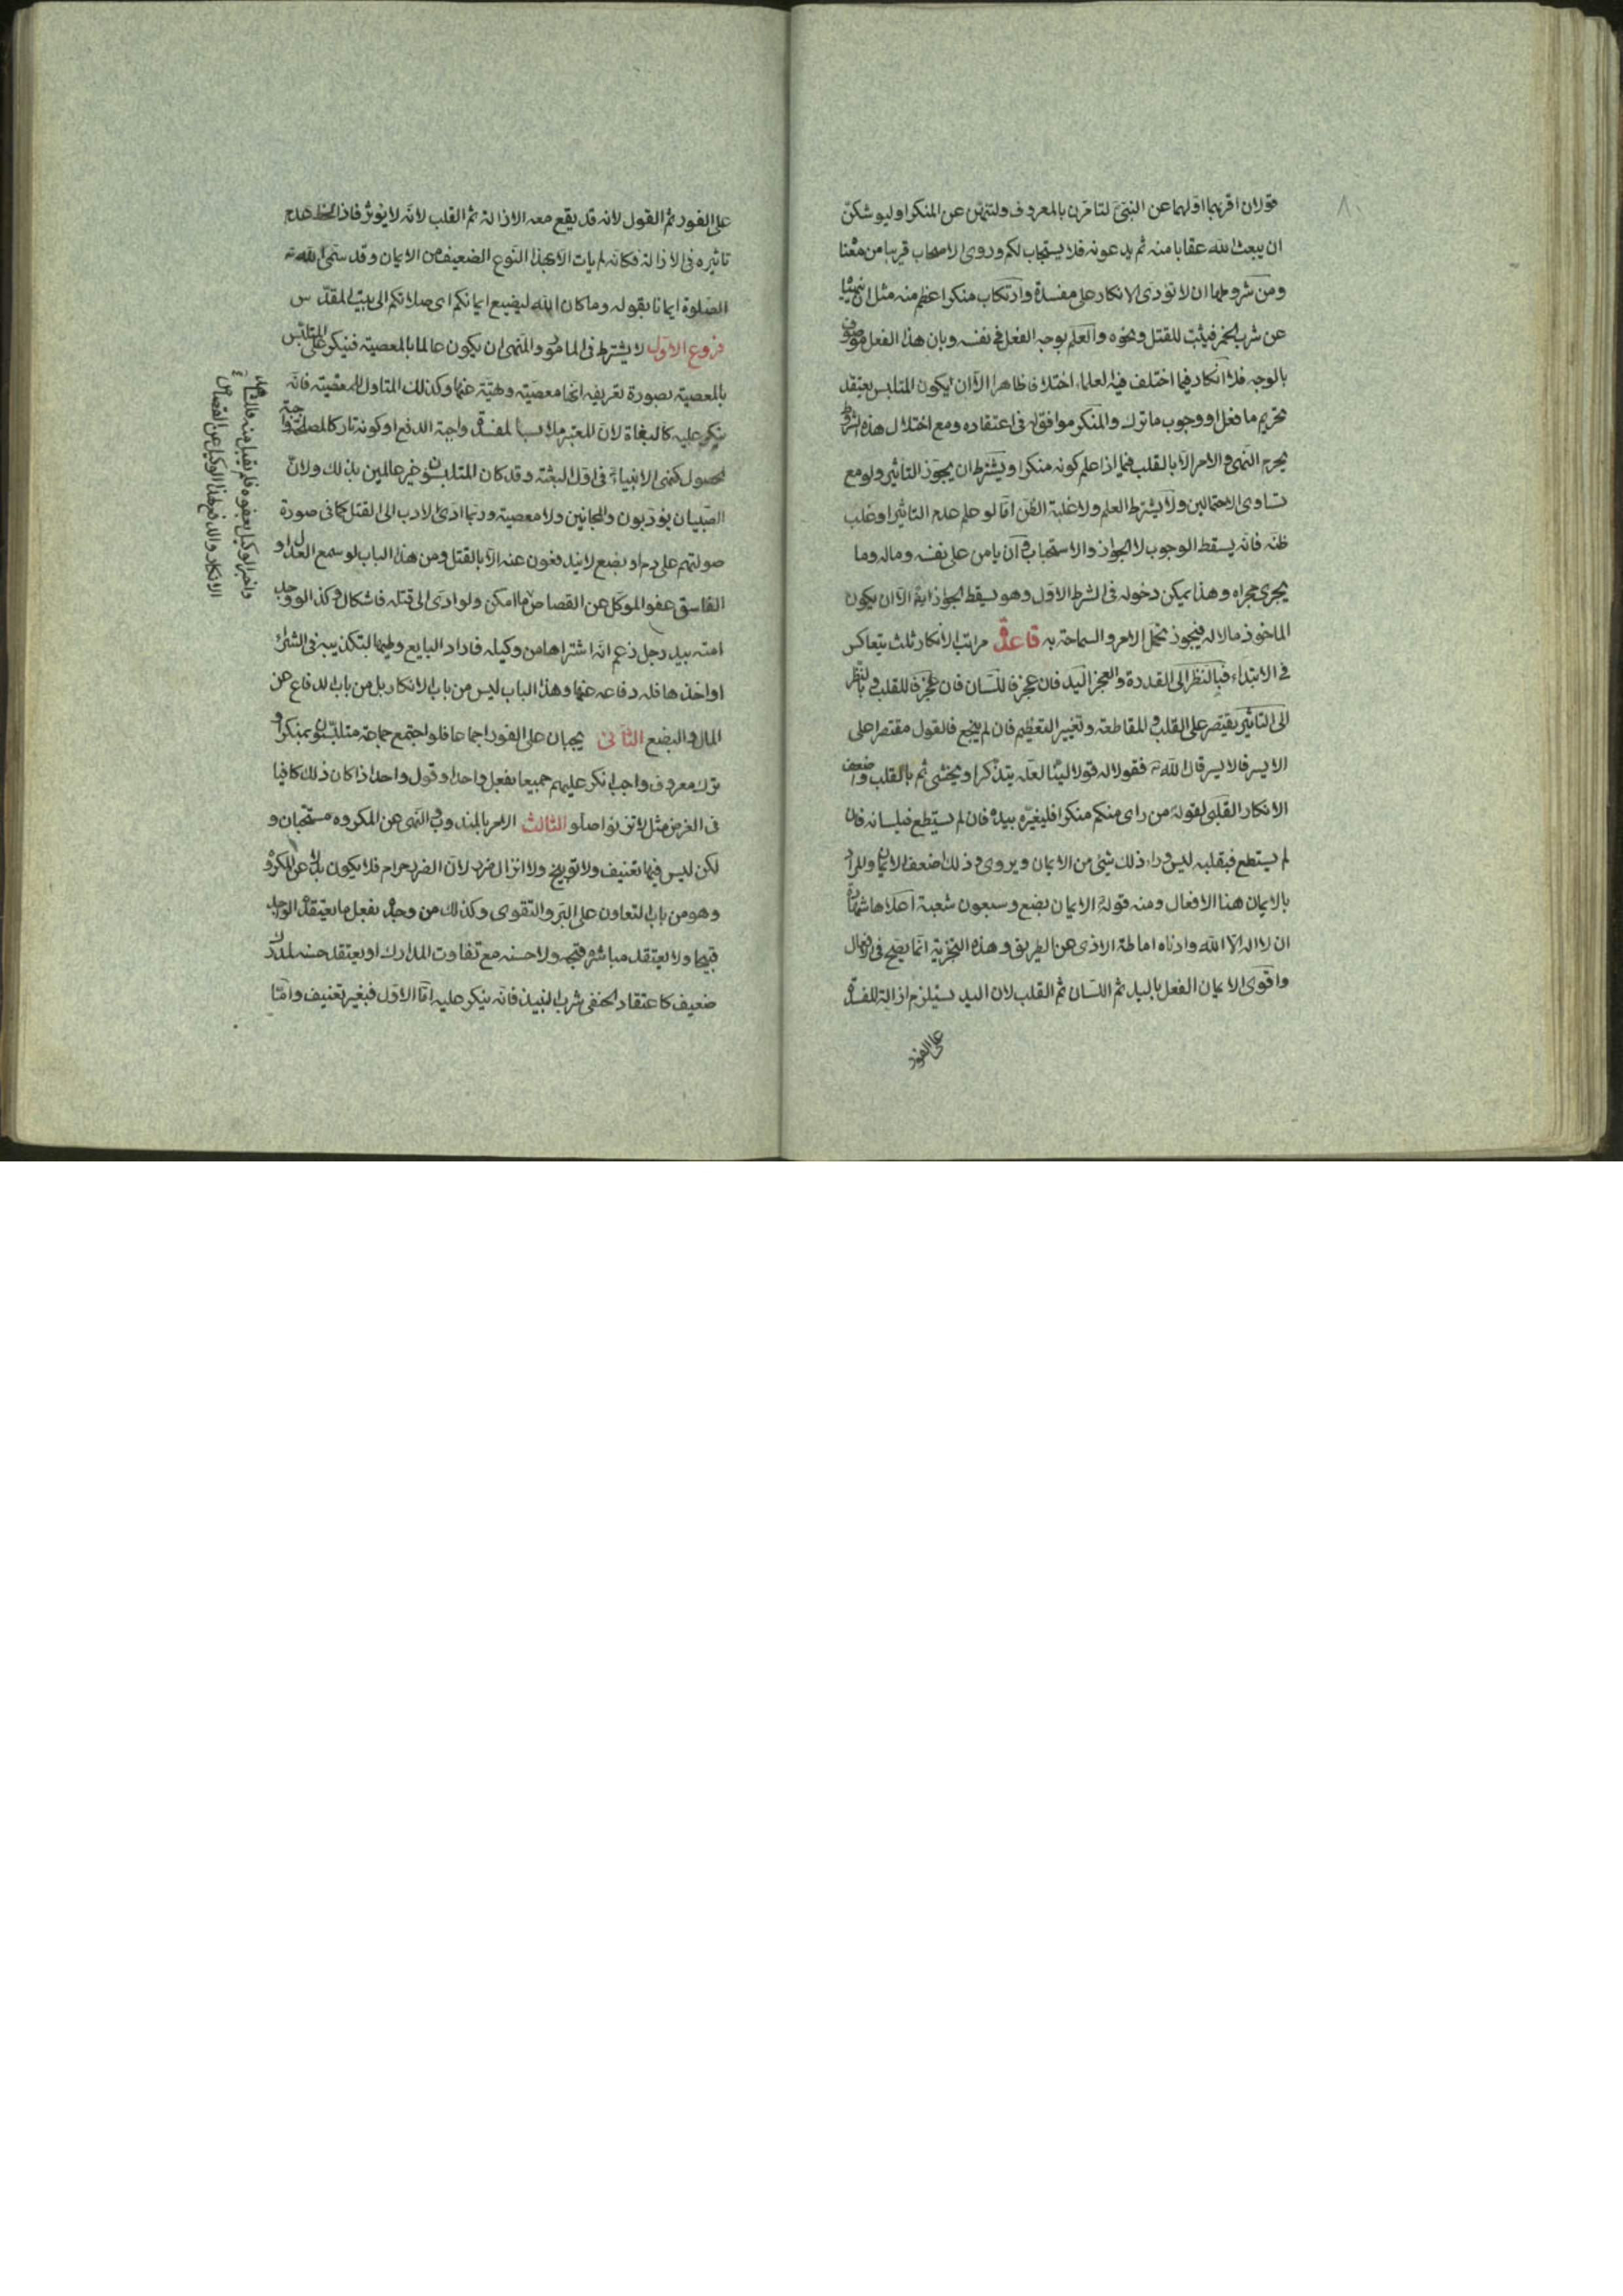 ٨٠
قولان اقربهما اولهما عن النبي لتامرن بالمعروف ولتنهن عن المنكر او ليوشكن
ان يبعث الله عقابا منه ثم يدعونه فلا يستجاب لكم وروى الاصحاب قريبا من معنا
ومن شروطها ان لا تؤدى الانكار على مفسدة وارتكاب منكر اعظم منه مثل ان ينهى
عن شرب الخمر فيثب للقتل ونحوه والعلم بوجه الفعل في نفسه وبان هذا الفعل موصوف
بالوجه فلا انكار فيما اختلف فيه العلماء اختلافا ظاهرا الا ان يكون المتلبس يعتقد
تحريم ما فعل او وجوب ما ترك والمنكر موافق له فى اعتقاده ومع اختلال هذه الشروط
يحرم النهى والامر الا بالقلب فيما اذا علم كونه منكرا ويشترط ان يجوز التاثير ولو مع
تساوى الاحتمالين ولا يشترط العلم ولا غلبة الظن اما لو علم عدم التاثير او غلب
ظنه فانه يسقط الوجوب لا الجواز والاستحباب وان يامن على نفسه وماله وما
يجرى مجراه وهذا يمكن دخوله فى الشرط الاول وهو يسقط الجواز ايضا الا ان يكون
الماخوذ مالا له فيجوز تحمل الامر والسماحة به قاعدة مراتب الانكار ثلث يتعاكس
فى الابتداء فبالنظر الى القدرة والعجز اليد فان عجز فاللسان فان عجز فالقلب وبالنظر
الى التاثير يقتصر على القلب والمقاطعة وتغيير التعظيم فان لم ينجع فالقول مقتصرا على
الايسر فالايسر قال الله تعالى فقولا له قولا لينا لعله يتذكر او يخشى ثم بالقلب واضعف
الانكار القلبى لقوله من راى منكم منكرا فليغيره بيده فان لم يستطع فبلسانه فان
لم يستطع فبقلبه ليس وراء ذلك شئ من الايمان ويروى وذلك اضعف الايمان والمراد
بالايمان هنا الافعال ومنه قوله الايمان بضع وسبعون شعبة اعلاها شهادة
ان لا اله الا الله وادناه اماطة الاذى عن الطريق وهذه التجزية انما يصح فى الافعال
واقوى الايمان الفعل باليد ثم اللسان ثم القلب لان اليد يستلزم ازالة المفسدة
على الفور
على الفور ثم القول لانه قد يقع معه الازالة ثم القلب لانه لا يؤثر فاذا لحظ عدم
تاثيره فى الازالة فكانه لم يات الا بهذا النوع الضعيف من الايمان وقد سمى الله تعالى
الصلوة ايمانا بقوله وما كان الله ليضيع ايمانكم اى صلاتكم الى بيت المقدس
فروع الاول لا يشترط فى المامور والمنهى ان يكون عالما بالمعصية فينكر على المتلبس
بالمعصية بصورة تعريفه انها معصية ونهيه عنها وكذلك المتاول للمعصية فانه
ينكر عليه كالبغاة لان المعتبر ملابسة المفسدة واجبة الدفع او كونه تاركا لمصلحة واجبة
الحصول كنهى الانبياء فى اول البعثة وقد كان المتلبسون غير عالمين بذلك ولان
الصبيان يؤدبون والمجانين ولا معصية وربما ادى الادب الى القتل كما فى صورة
صولتهم على دم او بضع لا يندفعون عنه الا بالقتل ومن هذا الباب لو سمع العدل او
الفاسق عفو الموكل عن القصاص ما امكن ولو ادى الى قتله فاشكال وكذا لو وجد
امته بيد رجل زعم انه اشتراها من وكيله فاراد البايع وطيها لتكذيبه فى الشراء
او اخذها فله دفاعه عنها وهذا الباب ليس من باب الانكار بل من باب الدفاع عن
المال والبضع الثانى يجبان على الفور اجماعا فلو اجتمع جماعة متلبسون بمنكر او
ترك معروف واجب انكر عليهم جميعا بفعل واحد او قول واحد اذا كان ذلك كافيا
فى الغرض مثل لا تزنوا صلوا الثالث الامر بالمندوب والنهى عن المكروه مستحبان و
لكن ليس فيها تعنيف ولا توبيخ ولا انزال ضرر لان الضرر حرام فلا يكون بدلا عن المكروه
وهو من باب التعاون على البر والتقوى وكذلك من وجد يفعل ما يعتقد الواجد
قبيحا ولا يعتقد مباشره قبحه ولا حسنه مع تفاوت المدارك او يعتقد حسنه لمدرك
ضعيف كاعتقاد الحنفى شرب النبيذ فانه ينكر عليه اما الاول فبغير تعنيف واما
واخبر الوكيل بعفوه فلم يقبل منه فللشاهد
الانكار والدفع لهذا الوكيل عن القصاص